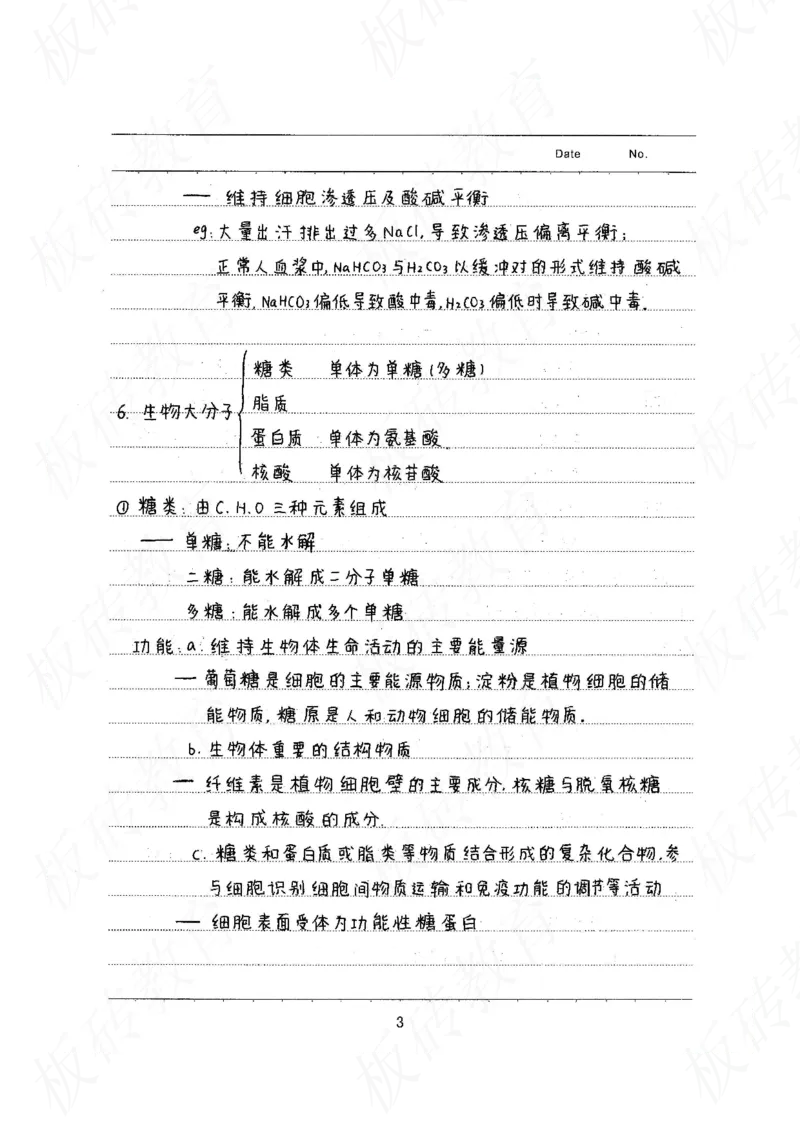 Date No.
— 维持细胞渗透压及酸碱平衡
eg:大量出汗排出过多NaCl,导致渗透压偏离平衡;
正常人血浆中,NaHCO3与H2CO3以缓冲对的形式维持酸碱
平衡,NaHCO3偏低导致酸中毒,H2CO3偏低时导致碱中毒.
6. 生物大分子
糖类 单体为单糖(多糖)
脂质
蛋白质 单体为氨基酸
核酸 单体为核苷酸
① 糖类:由C.H.O三种元素组成
— 单糖:不能水解
二糖:能水解成二分子单糖
多糖:能水解成多个单糖
功能:a.维持生物体生命活动的主要能量源
— 葡萄糖是细胞的主要能源物质;淀粉是植物细胞的储
能物质,糖原是人和动物细胞的储能物质.
b.生物体重要的结构物质
— 纤维素是植物细胞壁的主要成分,核糖与脱氧核糖
是构成核酸的成分.
c.糖类和蛋白质或脂类等物质结合形成的复杂化合物,参
与细胞识别细胞间物质运输和免疫功能的调节等活动
— 细胞表面受体为功能性糖蛋白
3
板砖教育